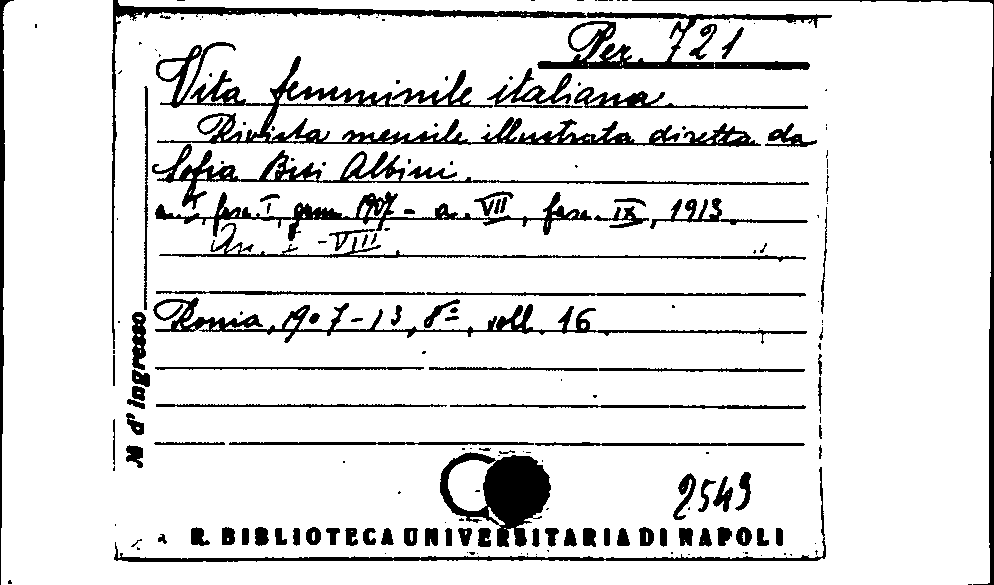 Per. 721
Vita femminile italiana.
Rivista mensile illustrata diretta da
Sofia Bisi Albini.
a. I, fasc. I, genn. 1907 - a. VII, fasc. IX, 1913.
An. I - VIII.
Roma, 1907-13, 8º, voll. 16.
N d' ingresso
2549
R. BIBLIOTECA UNIVERSITARIA DI NAPOLI